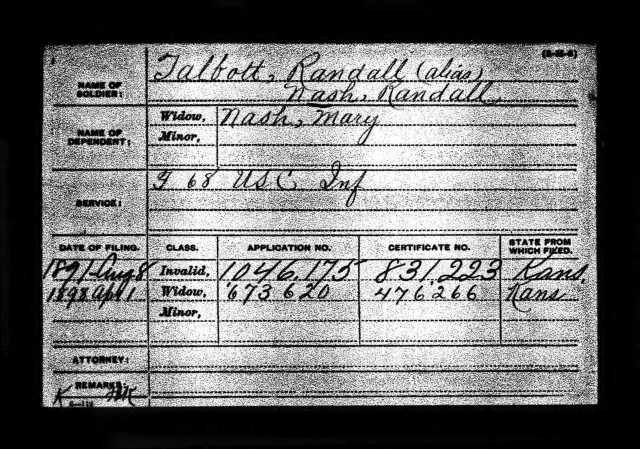 (3-22-6)
NAME OF SOLDIER: Talbott, Randall (alias)
Nash, Randall
NAME OF DEPENDENT: Widow, Nash, Mary
Minor,
SERVICE: G 68 U.S.C. Inf
DATE OF FILING. CLASS. APPLICATION NO. CERTIFICATE NO. STATE FROM WHICH FILED.
1891 Aug 8 Invalid, 1046.175 831.223 Kans.
1898 Apr 1 Widow, 673 620 476.266 Kans
Minor,
ATTORNEY:
REMARKS:
K